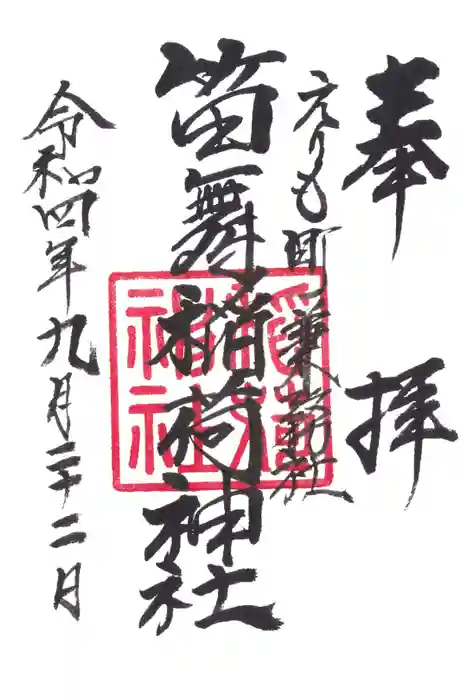 奉拝
えりも町 兼務社
笛舞稲荷神社
令和四年九月二十二日